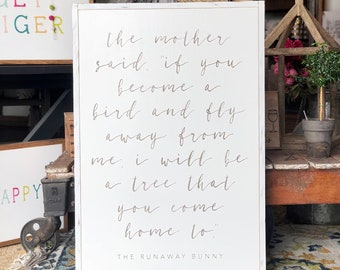 GET
IGER
APPY
the mother
said, "if you
become a
bird and fly
away from
me, i will be
a tree that
you come
home to."
THE RUNAWAY BUNNY